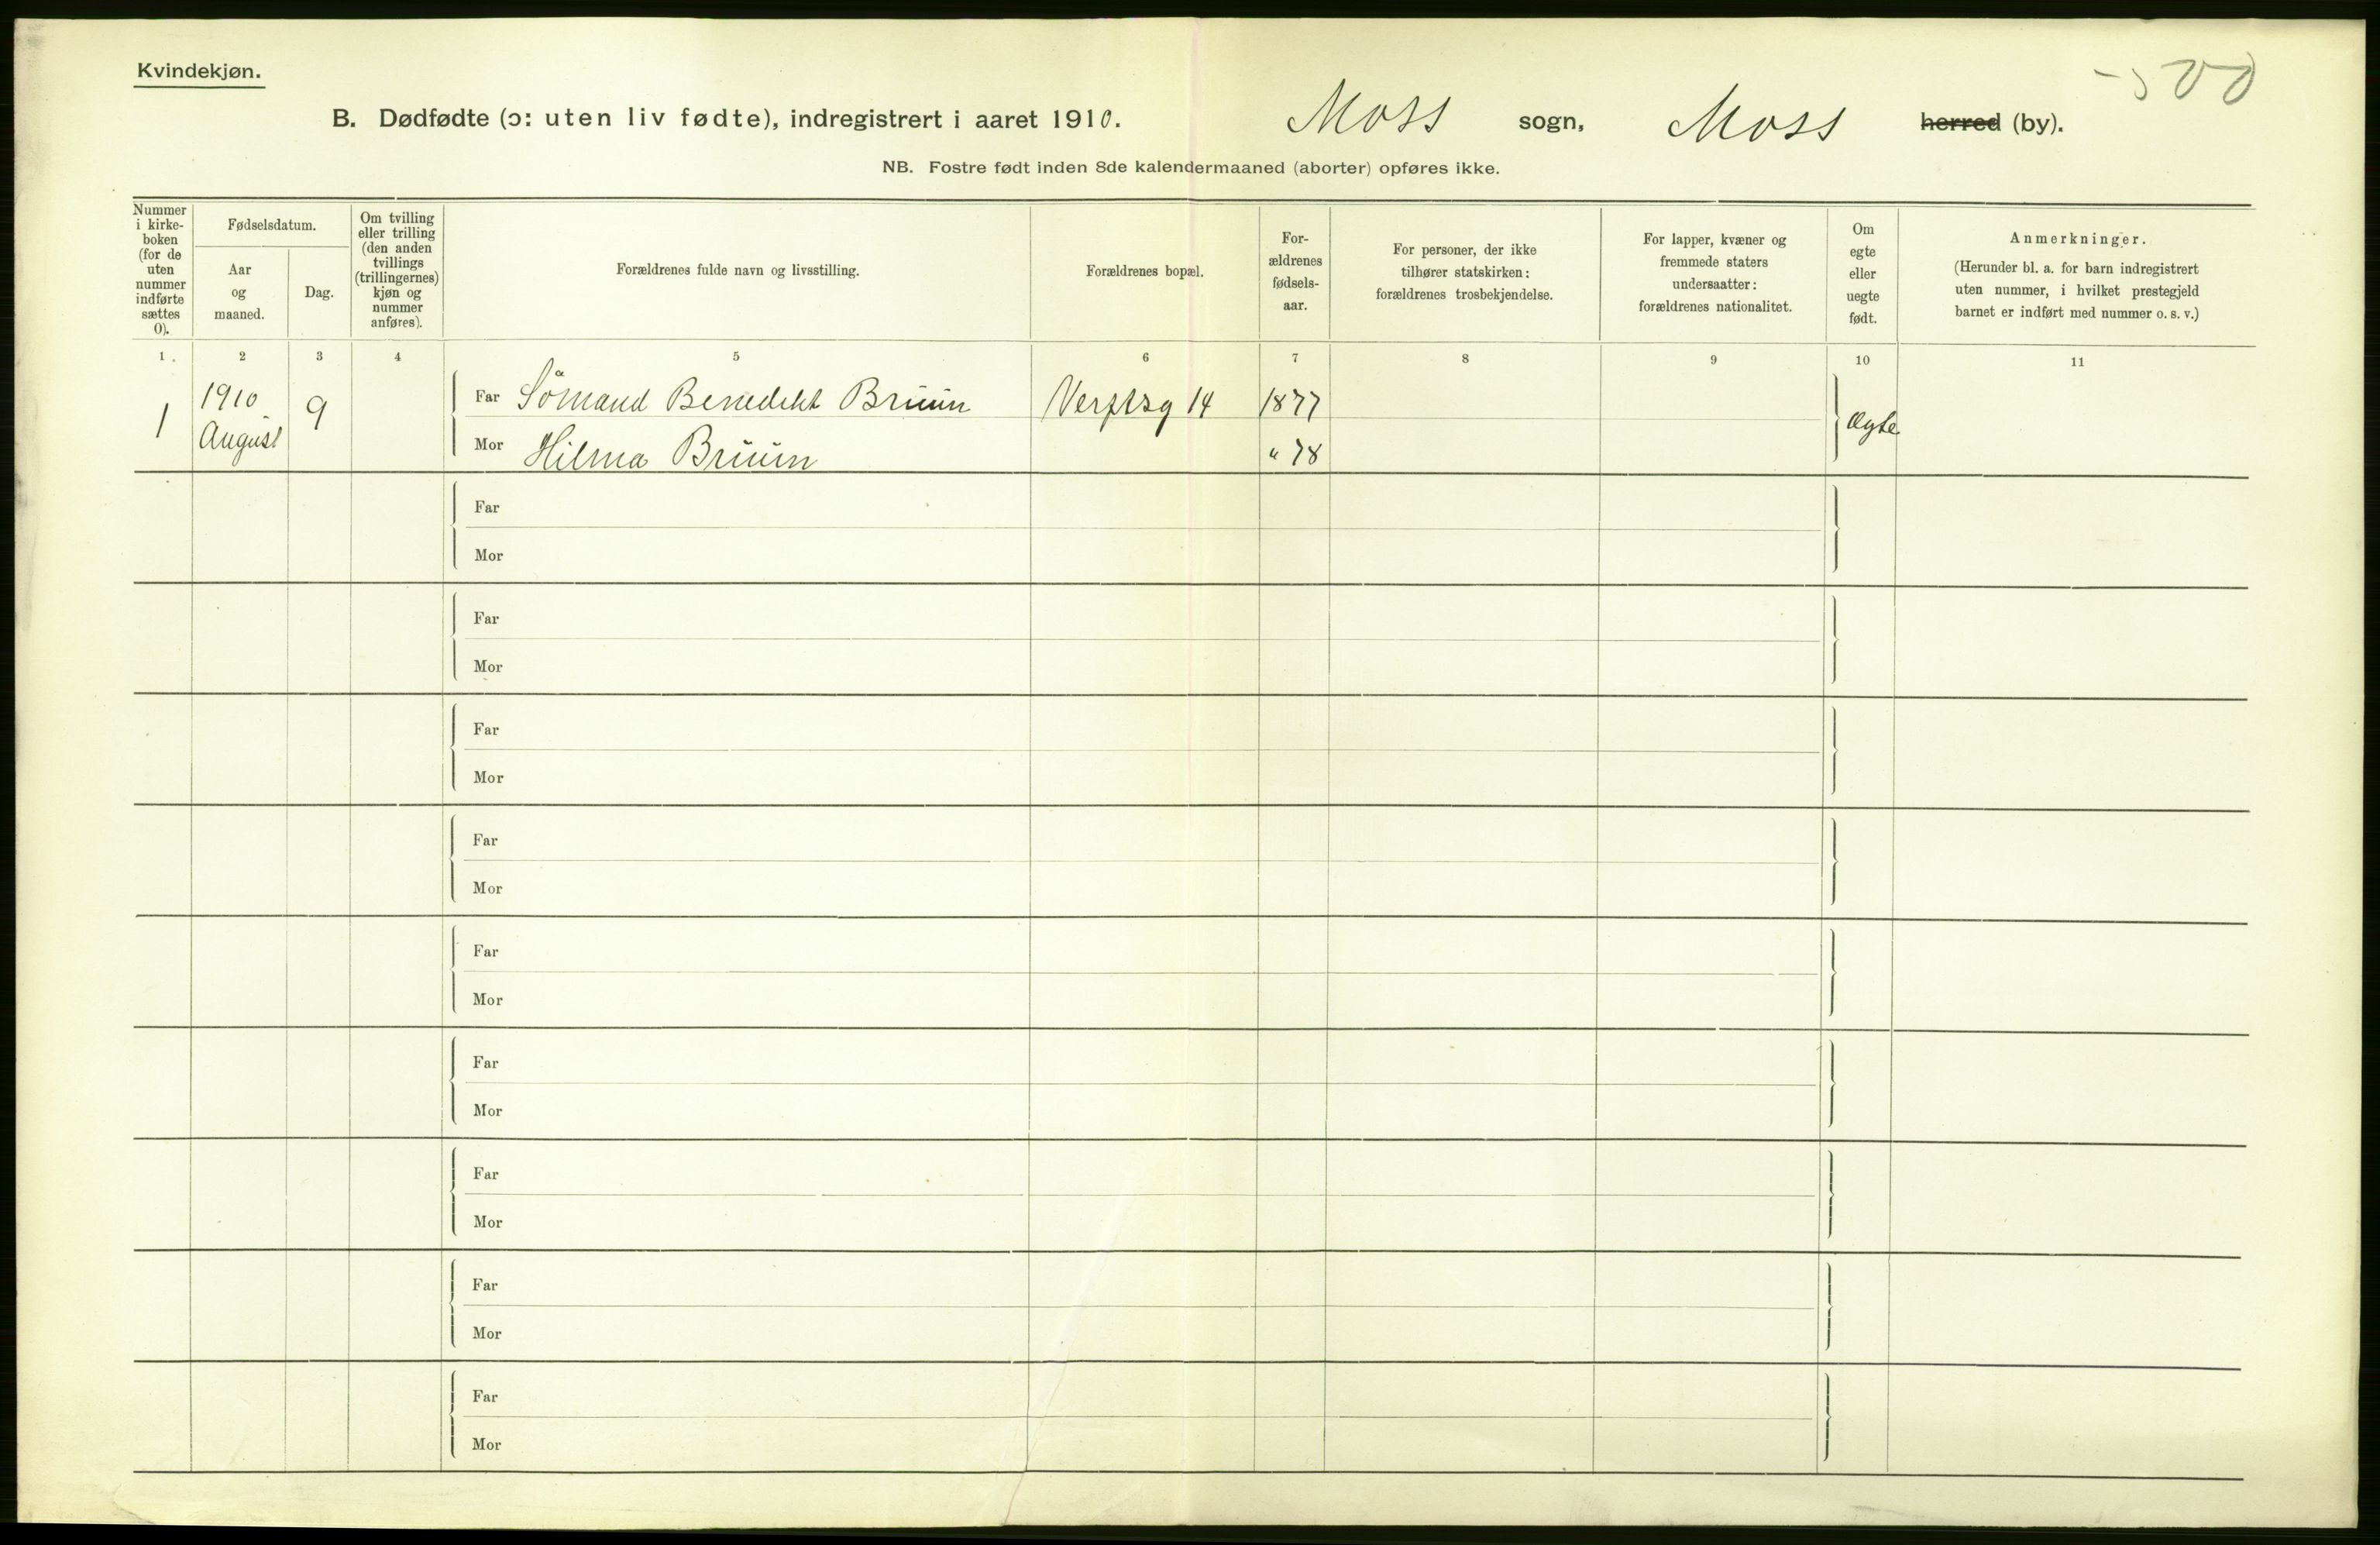 Kvindekjøn.
B. Dødfødte (ɔ: uten liv fødte), indregistrert i aaret 1910. Moss sogn, Moss herred (by).
NB. Fostre født inden 8de kalendermaaned (aborter) opføres ikke.
Nummer
i kirke-
boken
(for de
uten
nummer
indførte
sættes
0).
Fødselsdatum.
Aar
og
maaned.
Dag.
Om tvilling
eller trilling
(den anden
tvillings
(trillingernes)
kjøn og
nummer
anføres).
Forældrenes fulde navn og livsstilling.
Forældrenes bopæl.
For-
ældrenes
fødsels-
aar.
For personer, der ikke
tilhører statskirken:
forældrenes trosbekjendelse.
For lapper, kvæner og
fremmede staters
undersaatter:
forældrenes nationalitet.
Om
egte
eller
uegte
født.
Anmerkninger.
(Herunder bl. a. for barn indregistrert
uten nummer, i hvilket prestegjeld
barnet er indført med nummer o. s. v.)
1 2 3 4 5 6 7 8 9 10 11
1 1910 August 9
Far Sömand Benedikt Bruun Verftsg 14 1877
Mor Hilma Bruun " 78
Ægte
Far
Mor
Far
Mor
Far
Mor
Far
Mor
Far
Mor
Far
Mor
Far
Mor
Far
Mor
Far
Mor